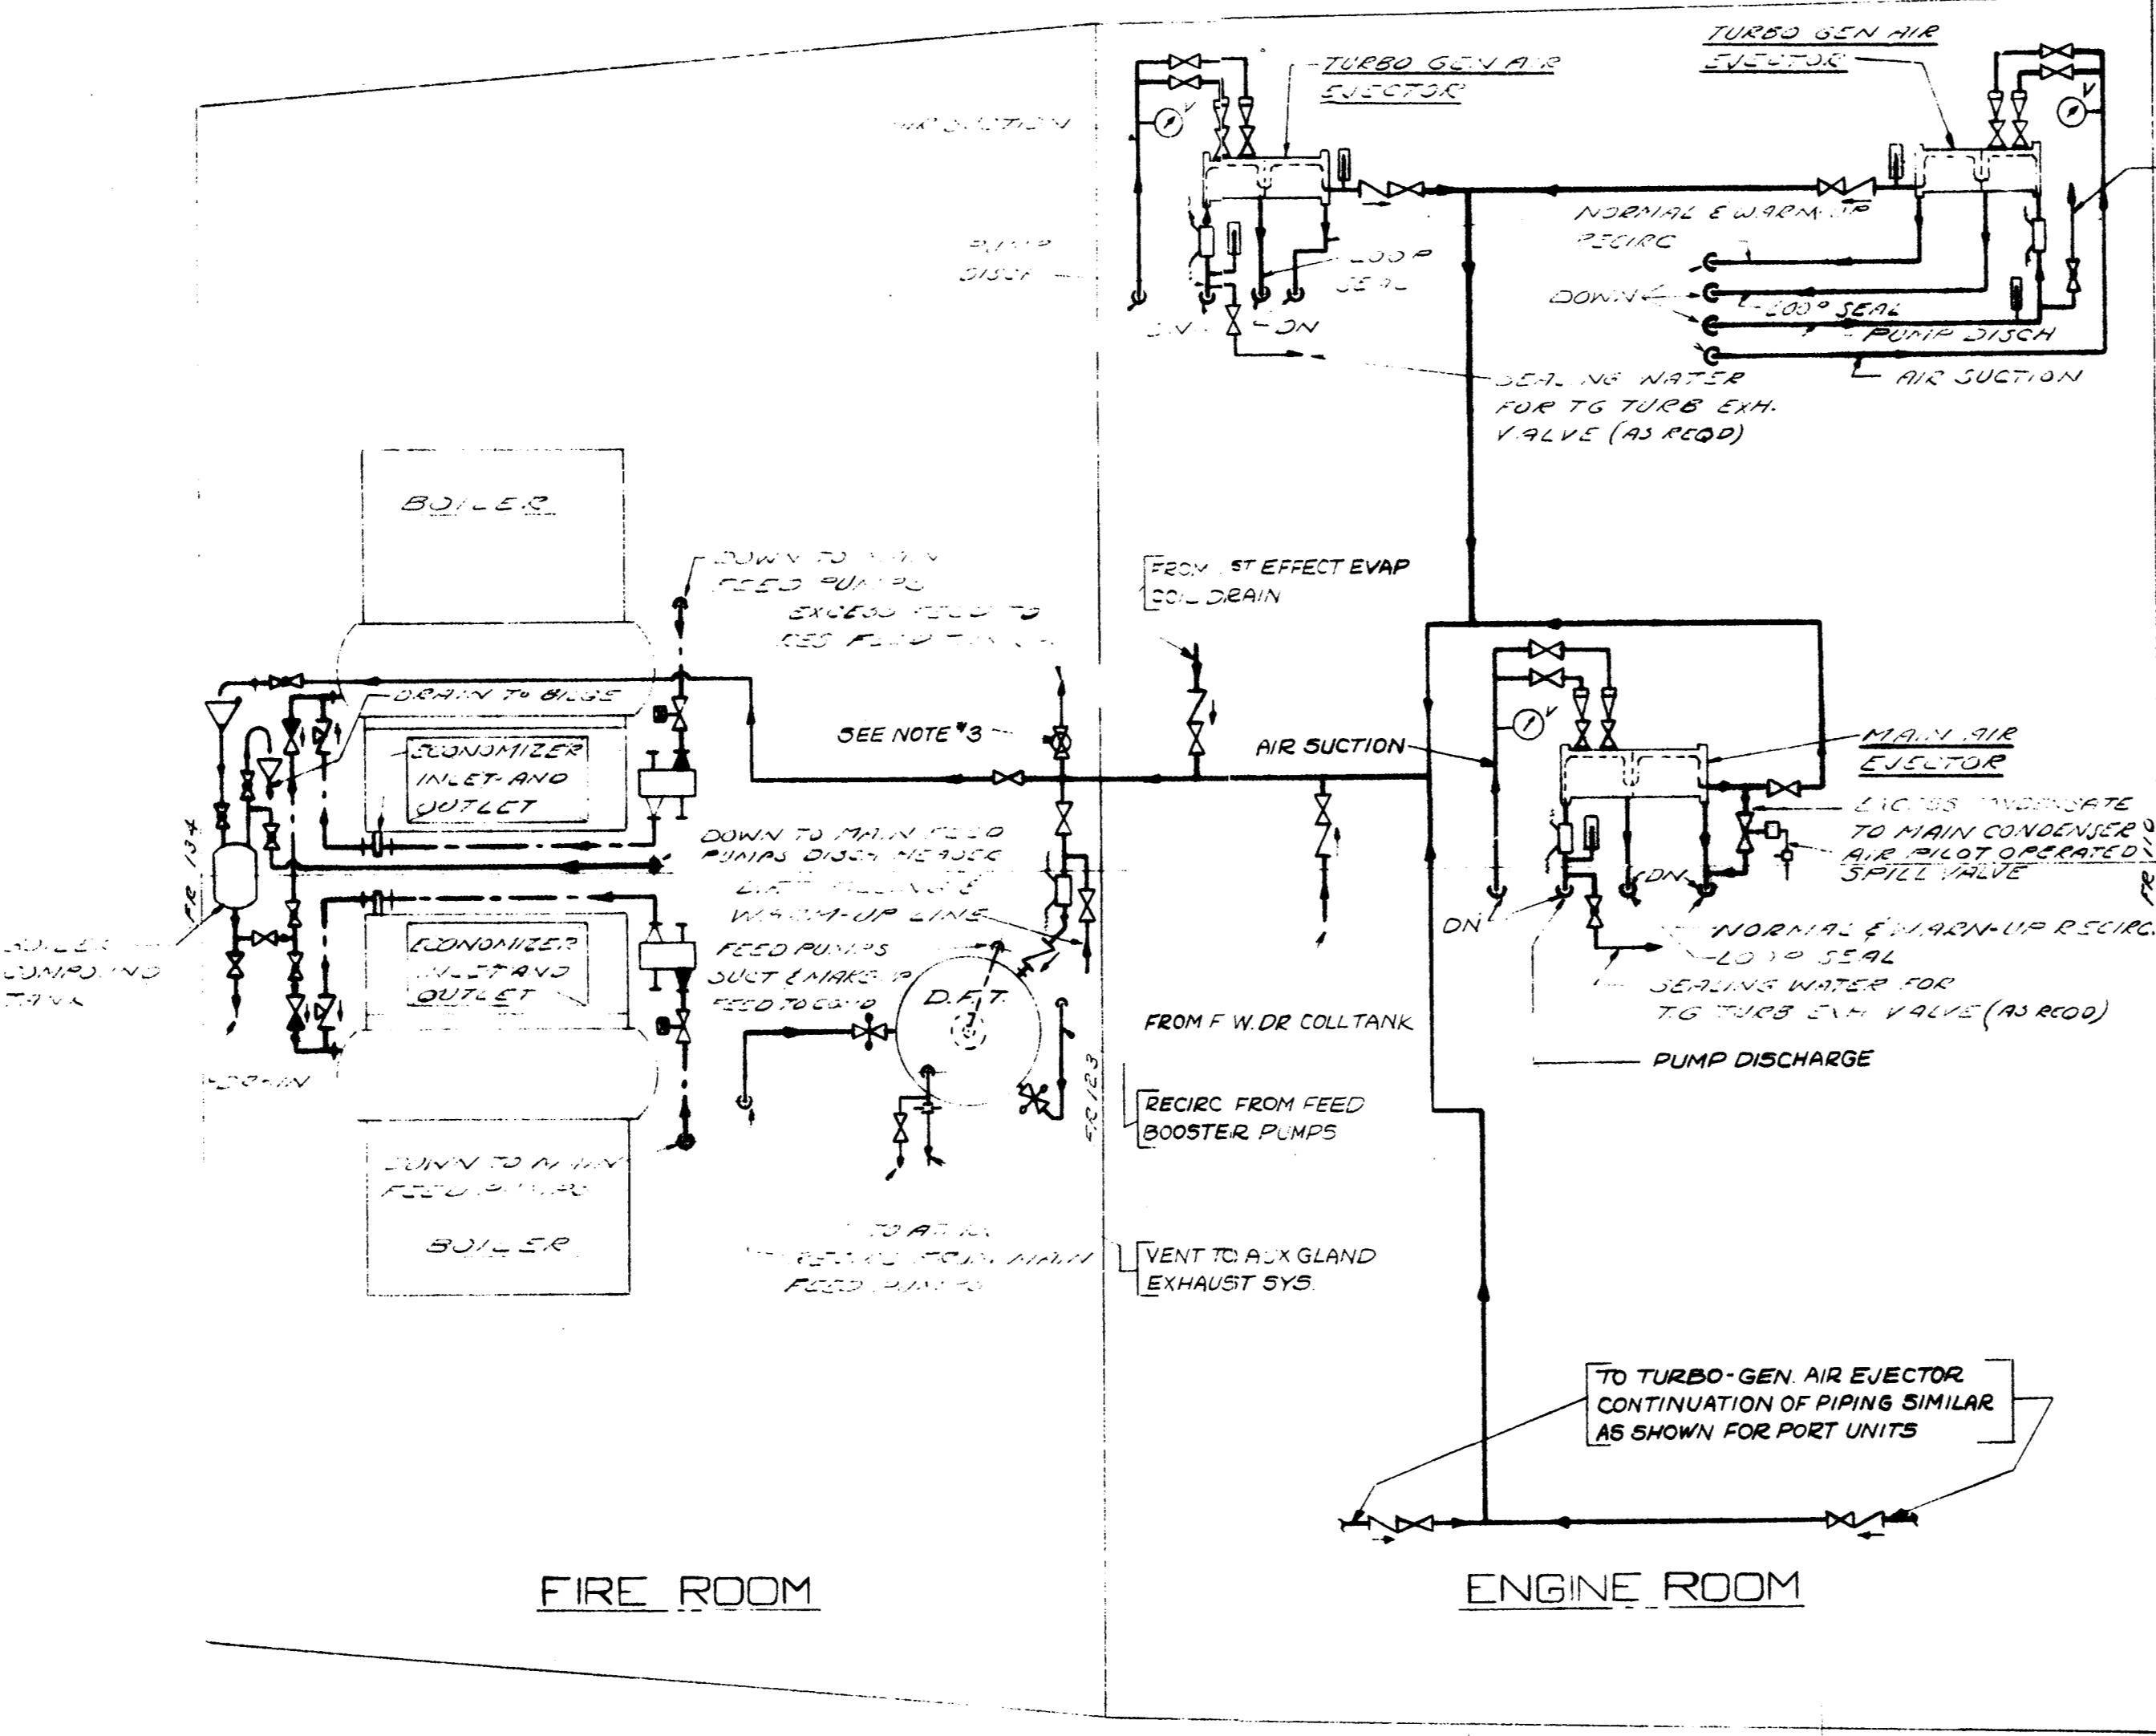 TURBO GEN AIR
EJECTOR
TURBO GEN AIR
EJECTOR
AIR SUCTION
V
V
PUMP
DISCH
LOOP
SEAL
DN
DN
NORMAL & WARM-UP
RECIRC
DOWN
LOOP SEAL
PUMP DISCH
AIR SUCTION
SEALING WATER
FOR TG TURB EXH.
VALVE (AS REQD)
BOILER
DOWN TO MAIN
FEED PUMPS
EXCESS FEED TO
RES FEED
FROM 1ST EFFECT EVAP
COIL DRAIN
DRAIN TO BILGE
SEE NOTE #3
AIR SUCTION
V
MAIN AIR
EJECTOR
ECONOMIZER
INLET AND
OUTLET
EXCESS CONDENSATE
TO MAIN CONDENSER
AIR PILOT OPERATED
SPILL VALVE
FR 110
FR 134
DOWN TO MAIN FEED
PUMPS DISCH HEADER
WARM-UP LINE
DN
DN
NORMAL & WARM-UP RECIRC.
LOOP SEAL
SEALING WATER FOR
TG TURB EXH VALVE (AS REQD)
PUMP DISCHARGE
BOILER
COMPOUND
TANK
ECONOMIZER
INLET AND
OUTLET
FEED PUMPS
SUCT & MAKE-UP
FEED TO COND
D.F.T.
FROM F.W. DR COLL TANK
DRAIN
FR 123
RECIRC FROM FEED
BOOSTER PUMPS
DOWN TO MAIN
FEED PUMPS
BOILER
RECIRC FROM MAIN
FEED PUMPS
VENT TO AUX GLAND
EXHAUST SYS.
TO TURBO-GEN. AIR EJECTOR
CONTINUATION OF PIPING SIMILAR
AS SHOWN FOR PORT UNITS
FIRE ROOM
ENGINE ROOM